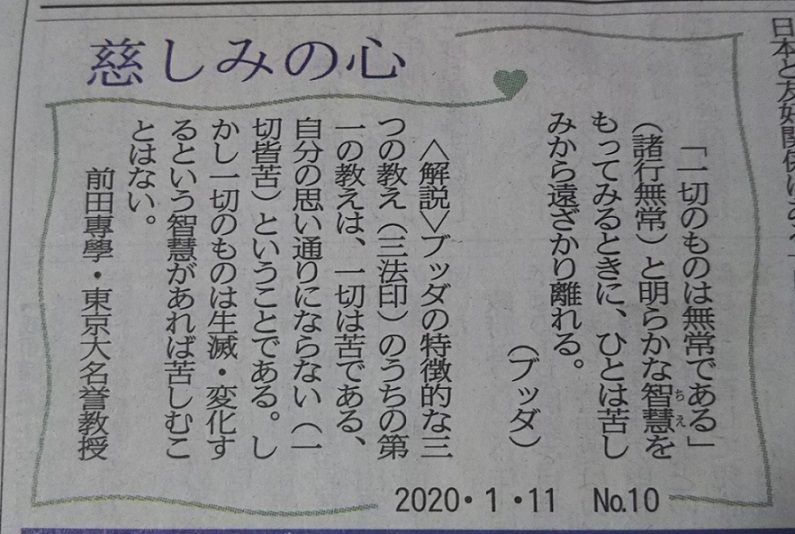 慈しみの心
「一切のものは無常である」
（諸行無常）と明らかな智慧を
ちえ
もってみるときに、ひとは苦し
みから遠ざかり離れる。
（ブッダ）
〈解説〉ブッダの特徴的な三
つの教え（三法印）のうちの第
一の教えは、一切は苦である、
自分の思い通りにならない（一
切皆苦）ということである。し
かし一切のものは生滅・変化す
るという智慧があれば苦しむこ
とはない。
前田專學・東京大名誉教授
2020・1・11 No.10